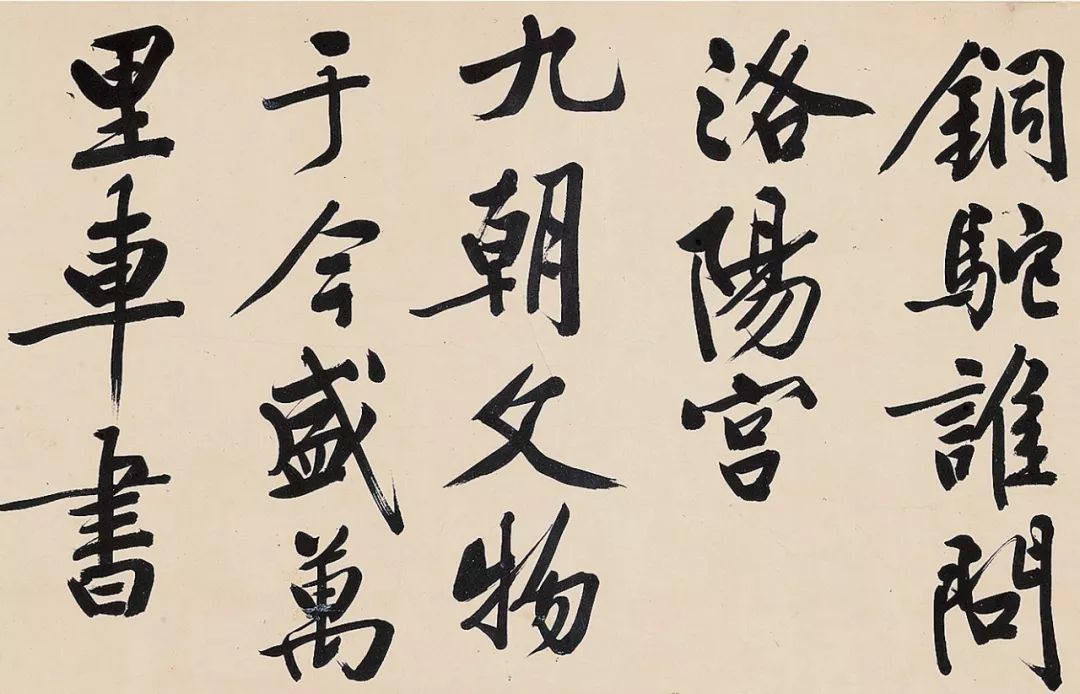 銅駝誰問
洛陽宮
九朝文物
于今盛萬
里車書